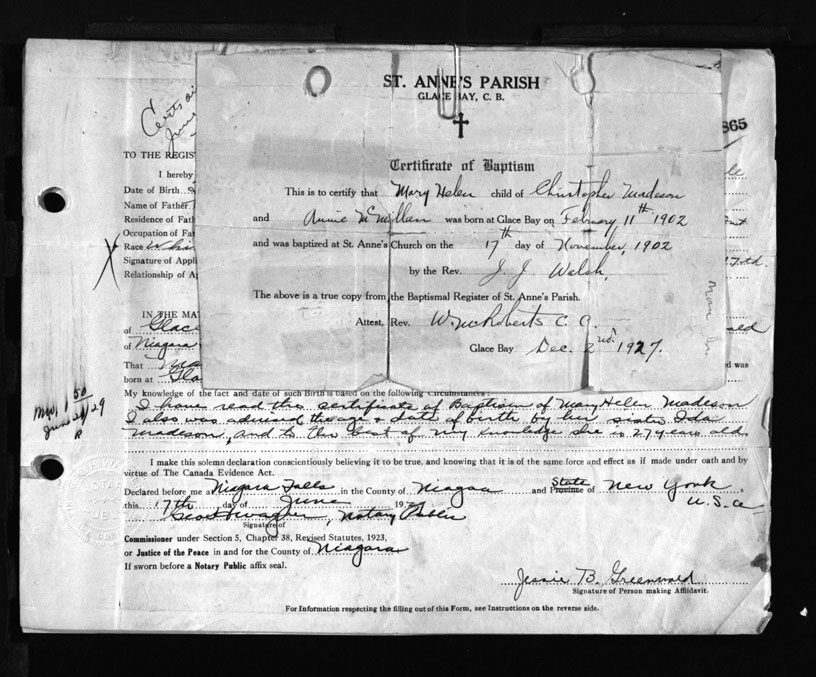 ST. ANNE'S PARISH
GLACE BAY, C. B.
Certificate of Baptism
This is to certify that Mary Helen child of Christopher Madeson
and Annie McMillan was born at Glace Bay on February 11th 1902
and was baptized at St. Anne's Church on the 17th day of November, 1902
by the Rev. J. J. Walsh.
The above is a true copy from the Baptismal Register of St. Anne's Parish.
Attest, Rev. W. McRoberts C. C.
Glace Bay Dec. 2nd. 1927.
865
TO THE REGIS
I hereby
Date of Birth
Name of Father
Residence of Fath
Occupation of Fa
Race Whi
Signature of Appli
Relationship of A
17th.
IN THE MA
of Glace
of Niagara
That
born at Gla
d was
My knowledge of the fact and date of such Birth is based on the following circumstances:
I have read the certificate of Baptism of Mary Helen Madeson
I also was advised the age & date of birth by her sister Ida
Madeson, and to the best of my knowledge she is 27 years old.
1 50
June 24/29
R
I make this solemn declaration conscientiously believing it to be true, and knowing that it is of the same force and effect as if made under oath and by
virtue of The Canada Evidence Act.
Declared before me at Niagara Falls in the County of Niagara and Province of State New York,
this 17th day of June 19 U.S.A
Notary Public
Signature of
Commissioner under Section 5, Chapter 38, Revised Statutes, 1923,
or Justice of the Peace in and for the County of Niagara
If sworn before a Notary Public affix seal.
Jessie B. Greenwald
Signature of Person making Affidavit.
For Information respecting the filling out of this Form, see Instructions on the reverse side.